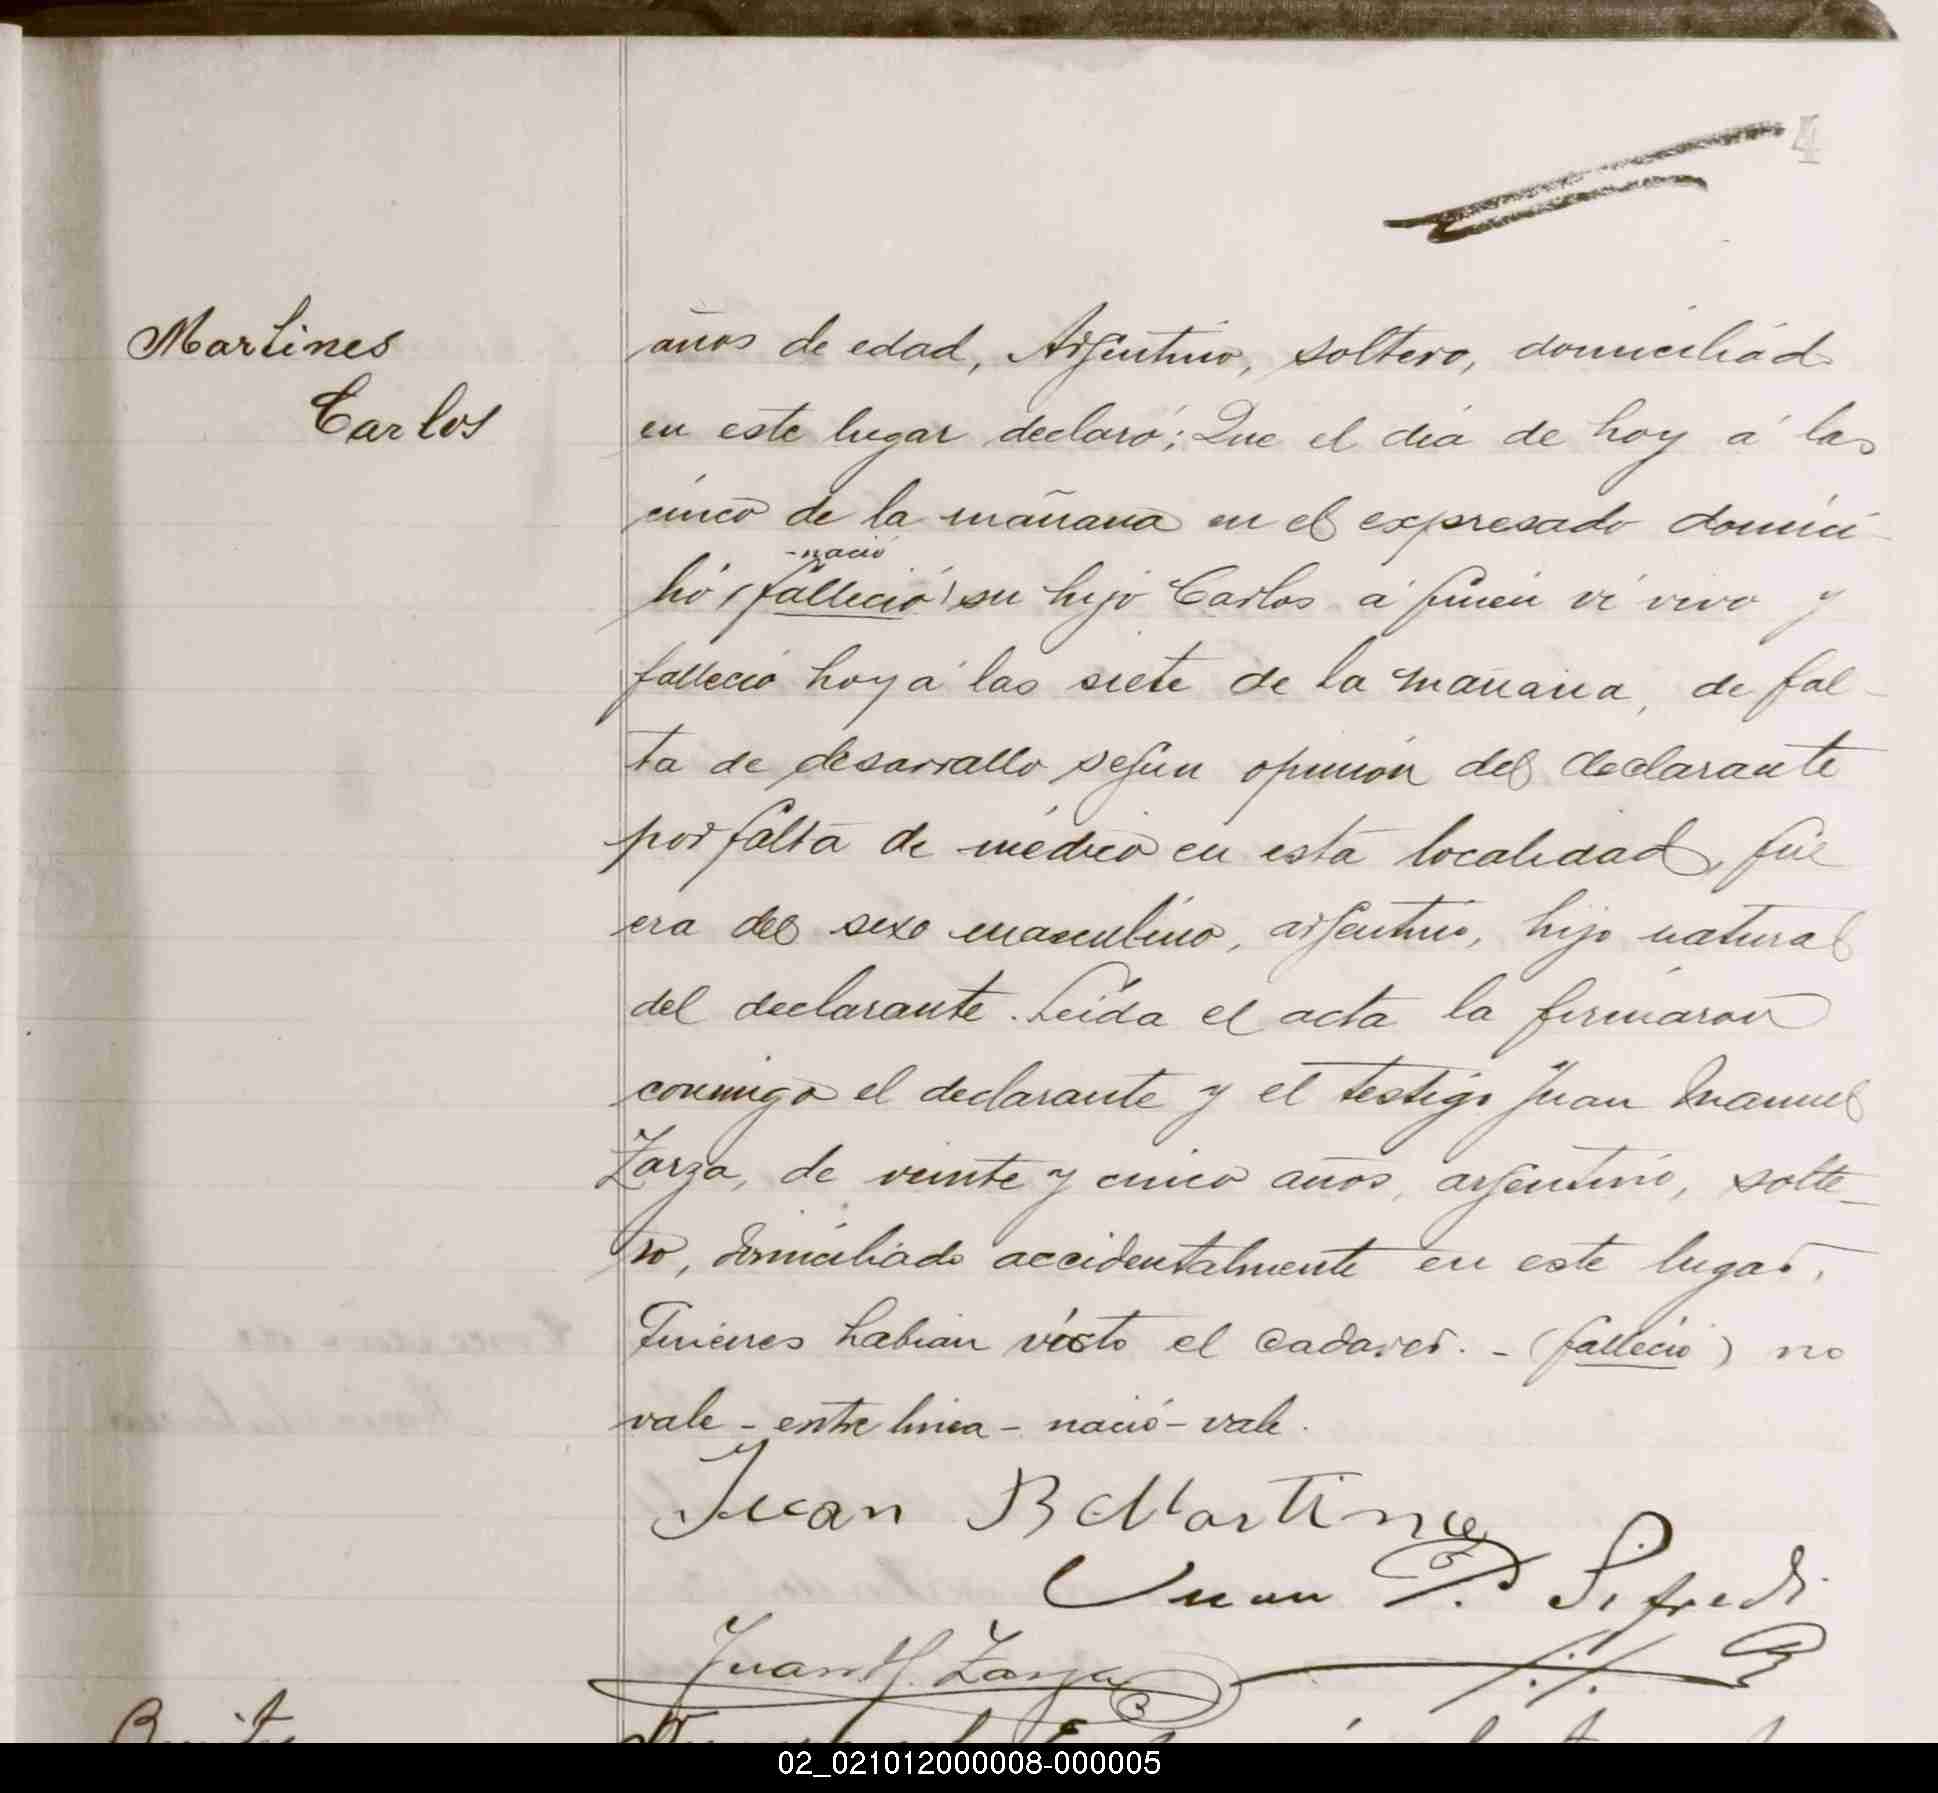 4
Martines
Carlos
años de edad, Argentino, soltero, domiciliad
en este lugar declaró; Que el dia de hoy á las
cinco de la mañana en el expresado domici-
lio (falleció) su hijo Carlos á quien vi vivo y
-nació
falleció hoy á las siete de la mañana, de fal-
ta de desarrallo segun opinión del declarante
por falta de médico en esta localidad, fue
era del sexo masculino, argentino, hijo natural
del declarante. Leida el acta la firmaron
conmigo el declarante y el testigo Juan Manuel
Zarza, de veinte y cinco años, argentino, solte-
ro, domiciliado accidentalmente en este lugar,
Quienes habian visto el cadaver. - (falleció) no
vale - entre linea - nació - vale.
Juan B Martinez
Juan P. Sifredi
Juan M. Zarza
02_021012000008-000005